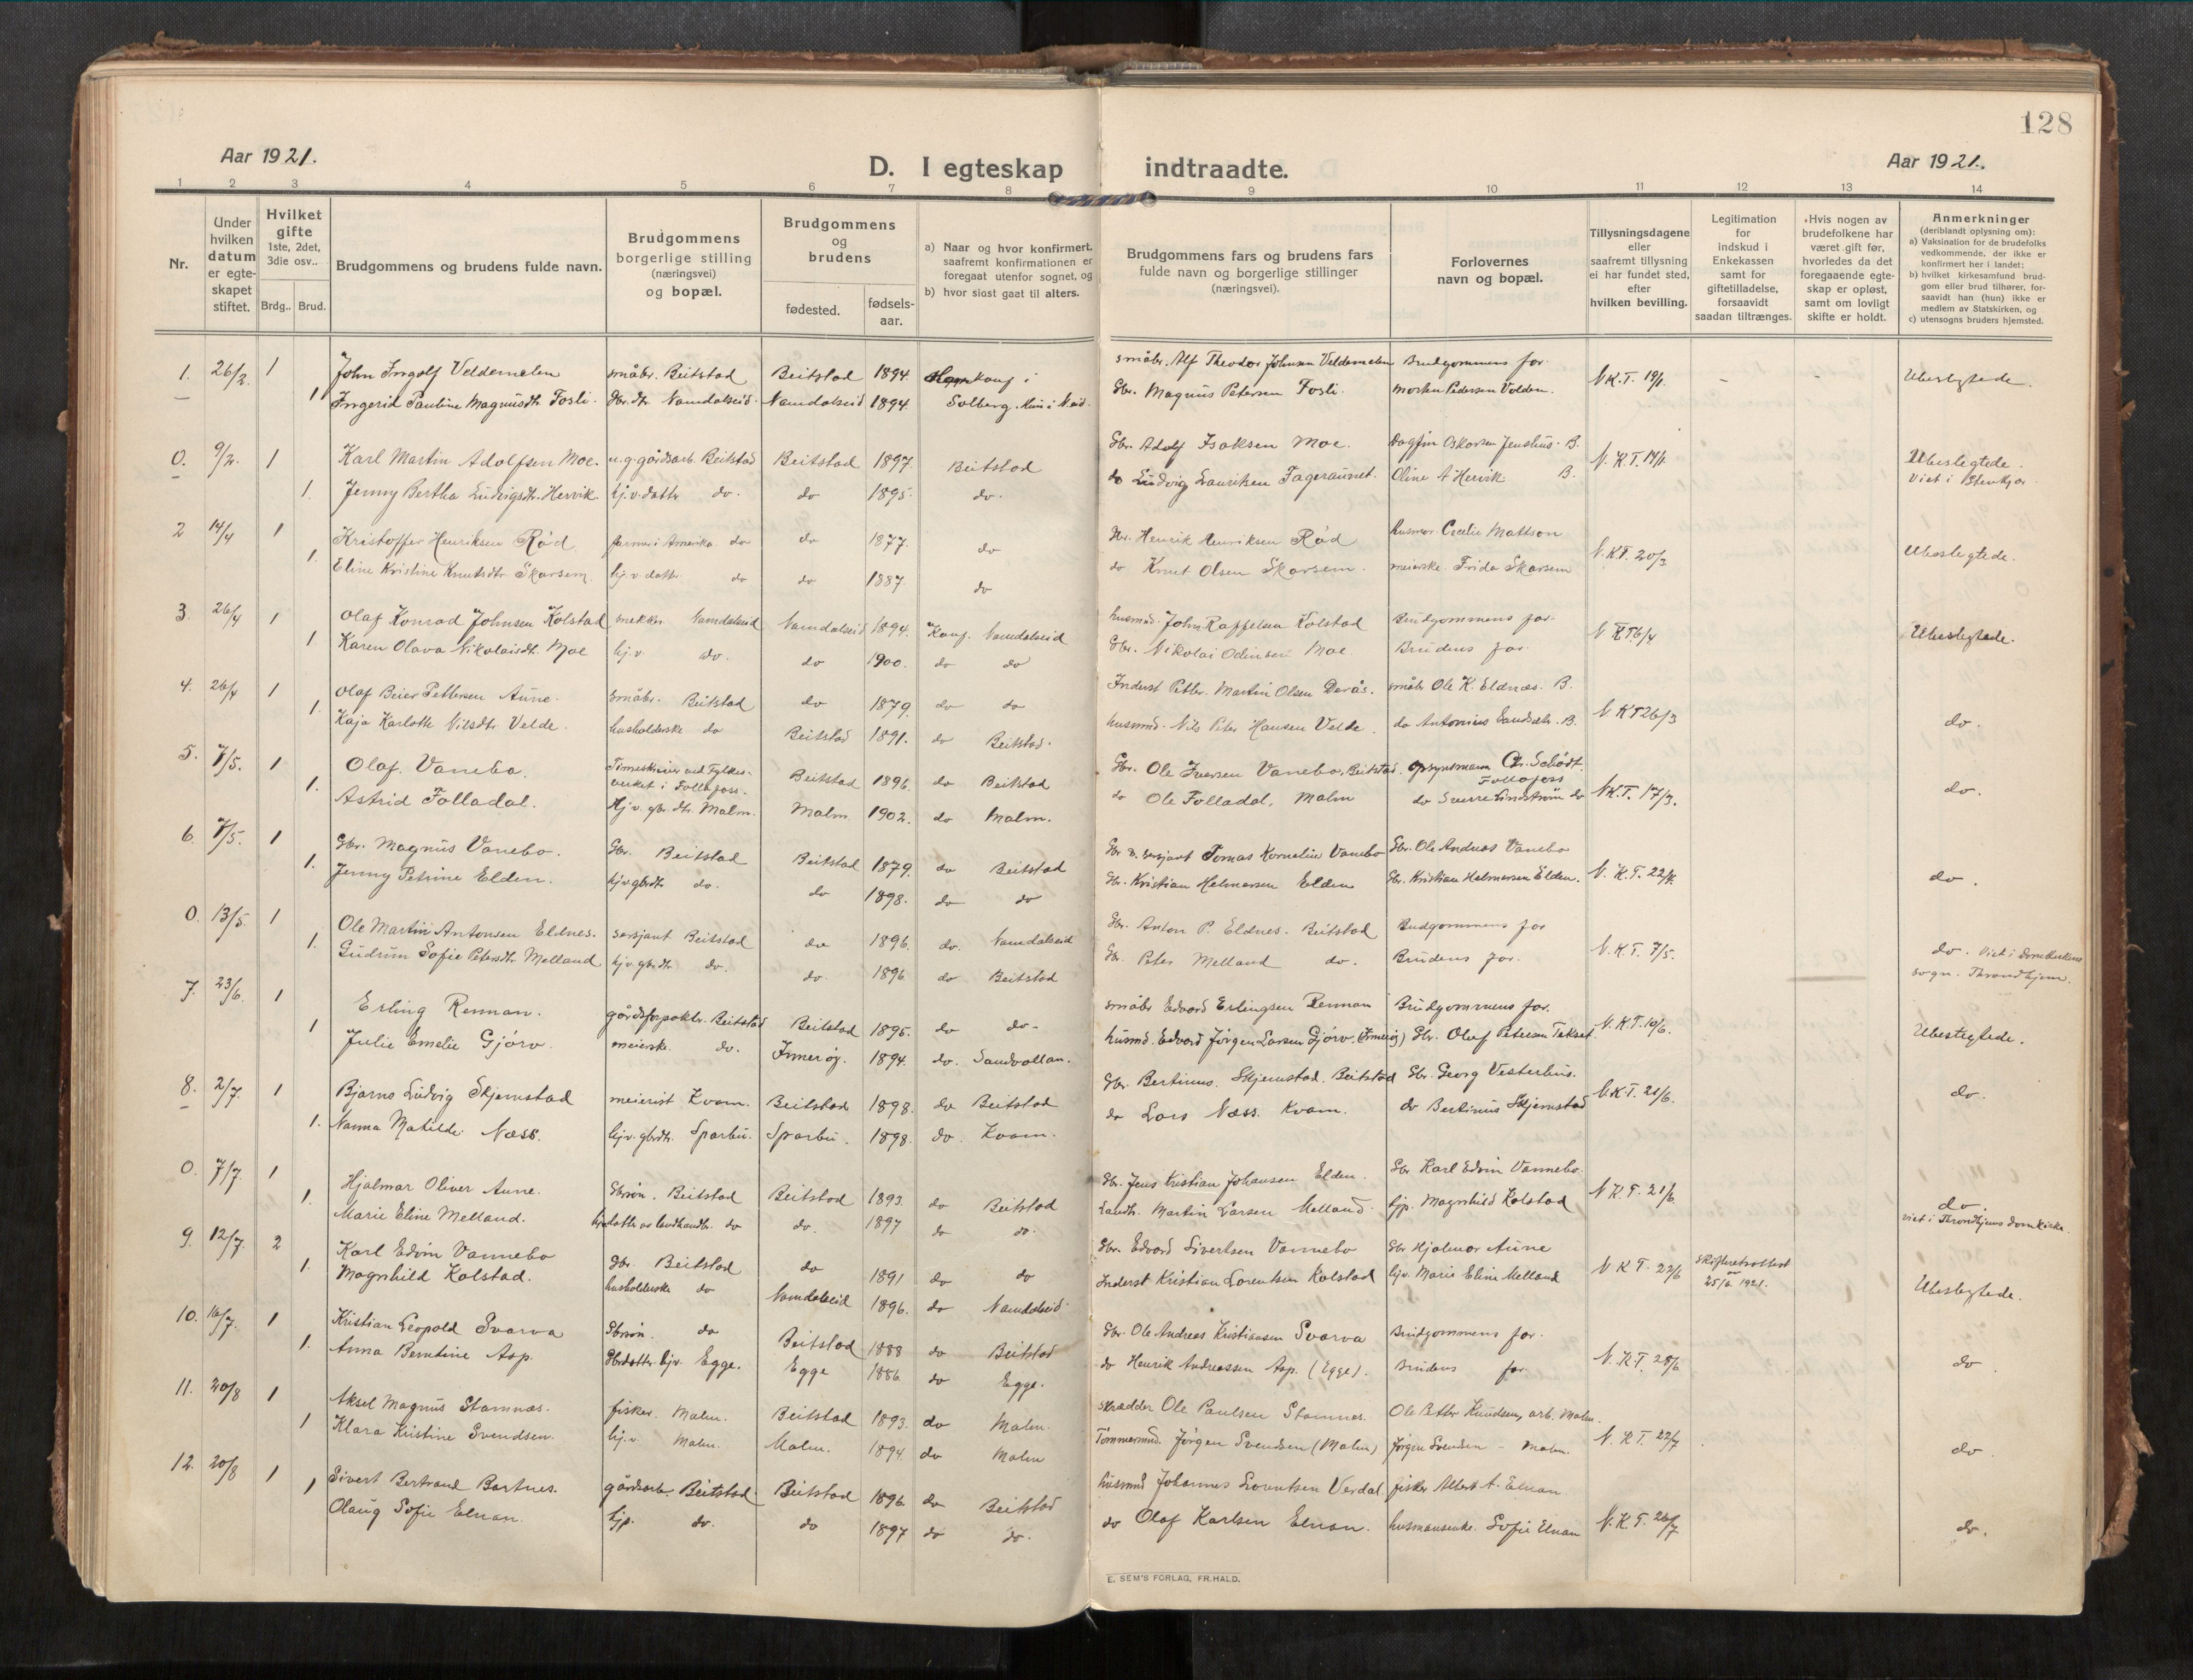 128
Aar 1921.
D. I egteskap indtraadte.
Aar 1921.
1 2 3 4 5 6 7 8 9 10 11 12 13 14
Nr.
Under hvilken datum er egte-skapet stiftet.
Hvilket gifte
1ste, 2det, 3die osv..
Brdg.. Brud.
Brudgommens og brudens fulde navn.
Brudgommens borgerlige stilling (næringsvei) og bopæl.
Brudgommens og brudens
fødested.
fødsels-aar.
a) Naar og hvor konfirmert, saafremt konfirmationen er foregaat utenfor sognet, og
b) hvor sidst gaat til alters.
Brudgommens fars og brudens fars fulde navn og borgerlige stillinger (næringsvei).
Forlovernes navn og bopæl.
Tillysningsdagene eller saafremt tillysning ei har fundet sted, efter hvilken bevilling.
Legitimation for indskud i Enkekassen samt for giftetilladelse, forsaavidt saadan tiltrænges.
Hvis nogen av brudefolkene har været gift før, hvorledes da det foregaaende egte-skap er opløst, samt om lovligt skifte er holdt.
Anmerkninger (deriblandt oplysning om):
a) Vaksination for de brudefolks vedkommende, der ikke er konfirmert her i landet;
b) hvilket kirkesamfund brud-gom eller brud tilhører, for-saavidt han (hun) ikke er medlem av Statskirken, og
c) utensogns bruders hjemsted.
1. 26/2. 1 John Ingolf Veldemelen småbr. Beitstad Beitstad 1894. konf i småbr. Alf Theodor Johnsen Veldemelen Brudgommens far. N.K.T. 19/1. - - Ubeslegtede.
1 Ingerid Pauline Magnusdtr. Fosli. Gbr. dtr. Namdalseid. Namdalseid 1894. Solberg Gbr. Magnus Petersen Fosli. Morten Pedersen Volden.
0. 9/2. 1 Karl Martin Adolfsen Moe. u.g. gårdsarb. Beitstad Beitstad 1897. Beitstad Gbr. Adolf Isaksen Moe. Dagfin Oskarsen Jenshus. B. N.K.T. 14/1. Ubeslegtede.
1. Jenny Bertha Ludvigsdtr. Hervik. hj.v. datter do. do 1895. do. do Ludvig Lauritsen Fageraunet. Oline A Hervik B. Viet i Stenkjær
2 14/4 1 Kristoffer Henriksen Rød farmer i Amerika do do 1877. do Gbr. Henrik Henriksen Rød husmor Cecelie Mattson N.K.T. 20/3 Ubeslegtede.
1. Eline Kristine Knutsdtr Skarsem. hj.v. datter do do 1887. do do Knut Olsen Skarsem. meierske Frida Skarsem
3. 26/4 1 Olaf Konrad Johnsen Kolstad snekker Namdalseid Namdalseid 1894. Konf. Namdalseid husmd. John Raffelsen Kolstad Brudgommens far. N.K.T. 6/4 Ubeslegtede.
1. Karen Olava Nikolaisdtr. Moe hj.v. do. do 1900. do do Gbr. Nikolai Odinsen Moe Brudens far.
4. 26/4 1 Olaf Beier Pettersen Aune. småbr. Beitstad do 1879. do do Inderst Petter Martin Olsen Derås. småbr Ole K. Eldnes. B. N.K.T. 26/3 do.
1. Kaja Karlotte Nilsdtr Velde. husholderske do Beitstad 1891. do Beitstad. husmd. Nils Peter Hansen Velde. do Antonius B.
5. 7/5. 1 Olaf Vanebo. Timeskriver ved Fylkes-verket i Follafoss. Beitstad 1896. do Beitstad Gbr. Ole Iversen Vanebo, Beitstad. opsynsmann Chr. Schødt. Follafoss N.K.T. 17/3. do.
1. Astrid Folladal. Hj.v. gbr. dtr. Malm. Malm 1902. do Malm. do Ole Folladal, Malm do Sverre Lindstrøm do
6. 7/5. 1 Gbr. Magnus Vanebo. Gbr. Beitstad Beitstad 1879. do Beitstad Gbr. & sersjant Tomas Kornelius Vanebo Gbr. Ole Andreas Vanebo N.K.T. 22/4. do.
1. Jenny Petrine Elden. hj.v. gbrdtr do. do 1898. do do Gbr. Kristian Helmersen Elden Gbr. Kristian Helmersen Elden.
0. 13/5. 1 Ole Martin Antonsen Eldnes. sersjant Beitstad do 1896. do. Namdalseid Gbr. Anton P. Eldnes. Beitstad Brudgommens far N.K.T. 7/5. do. Viet i Domkirkens
1. Gudrun Sofie Petersdtr Melland hj.v. gbrdtr. do. do. 1896 do Beitstad Gbr. Peter Melland do. Brudens far. sogn. Throndhjem.
7. 23/6. 1 Erling Renman. gårdsforpakter. Beitstad Beitstad 1895. do do- småbr Edvard Erlingsen Renman Brudgommens far. N.K.T. 10/6. Ubeslegtede.
1 Julie Emelie Gjørv. meiersk. do. Inderøy. 1894. do. Sandvollan. husmd. Edvard Jørgen Larsen Gjørv. Gbr. Oluf Petersen Tekset
8. 2/7. 1 Bjarne Ludvig Skjemstad meierist Kvam. Beitstad 1898. do Beitstad Gbr. Bertinus Skjemstad. Beitstad Gbr. Georg Vesterhus. N.K.T. 21/6. do.
1. Nanna Matilde Næss. hj.v. gbrdtr. Sparbu. Sparbu. 1898. do. Kvam. do Lars Næss. Kvam. do Bertinus Skjemstad
0. 7/7. 1 Hjalmar Oliver Aune. Gbrsøn. Beitstad Beitstad 1893. do Beitstad Gbr. Jens Kristian Johansen Elden. Gbr Karl Edvin Vannebo. N.K.T. 21/6. do.
1. Marie Eline Melland. datter av landhandlr. do do. 1897 do do. Landh. Martin Larsen Melland. hjp. Magnhild Kolstad viet i Throndhjems domkirke.
9. 12/7. 2 Karl Edvin Vannebo Gbr. Beitstad do 1891 do do Gbr. Edvard Sivertsen Vannebo Gbr Hjalmar Aune N.K.T. 22/6 Skifteretsattest 25/6 1921. Ubeslegtede.
1. Magnhild Kolstad. husholderske do Namdalseid 1896. do Namdalseid. Inderst Kristian Lorentsen Kolstad hj.v. Marie Eline Melland
10. 16/7. 1 Kristian Leopold Svarva Gbrsøn. do Beitstad 1888 do Beitstad Gbr. Ole Andreas Kristiansen Svarva Brudgommens far. N.K.T. 28/6 do.
1. Anna Berntine Asp. Gbrdatter hjv. Egge. Egge 1886 do Egge. do Henrik Andreassen Asp. (Egge). Brudens far
11. 20/8 1 Aksel Magnus Stamnæs. fisker. Malm. Beitstad 1893. do Malm. skrædder Ole Paulsen Stamnes. Ole Petter Knudsen, arb. Malm. N.K.T. 22/7 do.
1 Klara Kristine Svendsen. hj.v. Malm. Malm. 1894. do Malm Tømmermd. Jørgen Svendsen (Malm) Jørgen Svendsen - Malm.
12. 20/8 1 Sivert Bertrand Bartnes. gårdsarb. Beitstad. Beitstad 1896 do Beitstad husmd Johannes Lorentsen Verdal fisker Albert A. Elnan. N.K.T. 26/7 do.
1 Olaug Sofie Elnan. hjp. do. do 1897 do do. do Olaf Karlsen Elnan. husmansenke. Sofie Elnan
E. SEM'S FORLAG, FR.HALD.